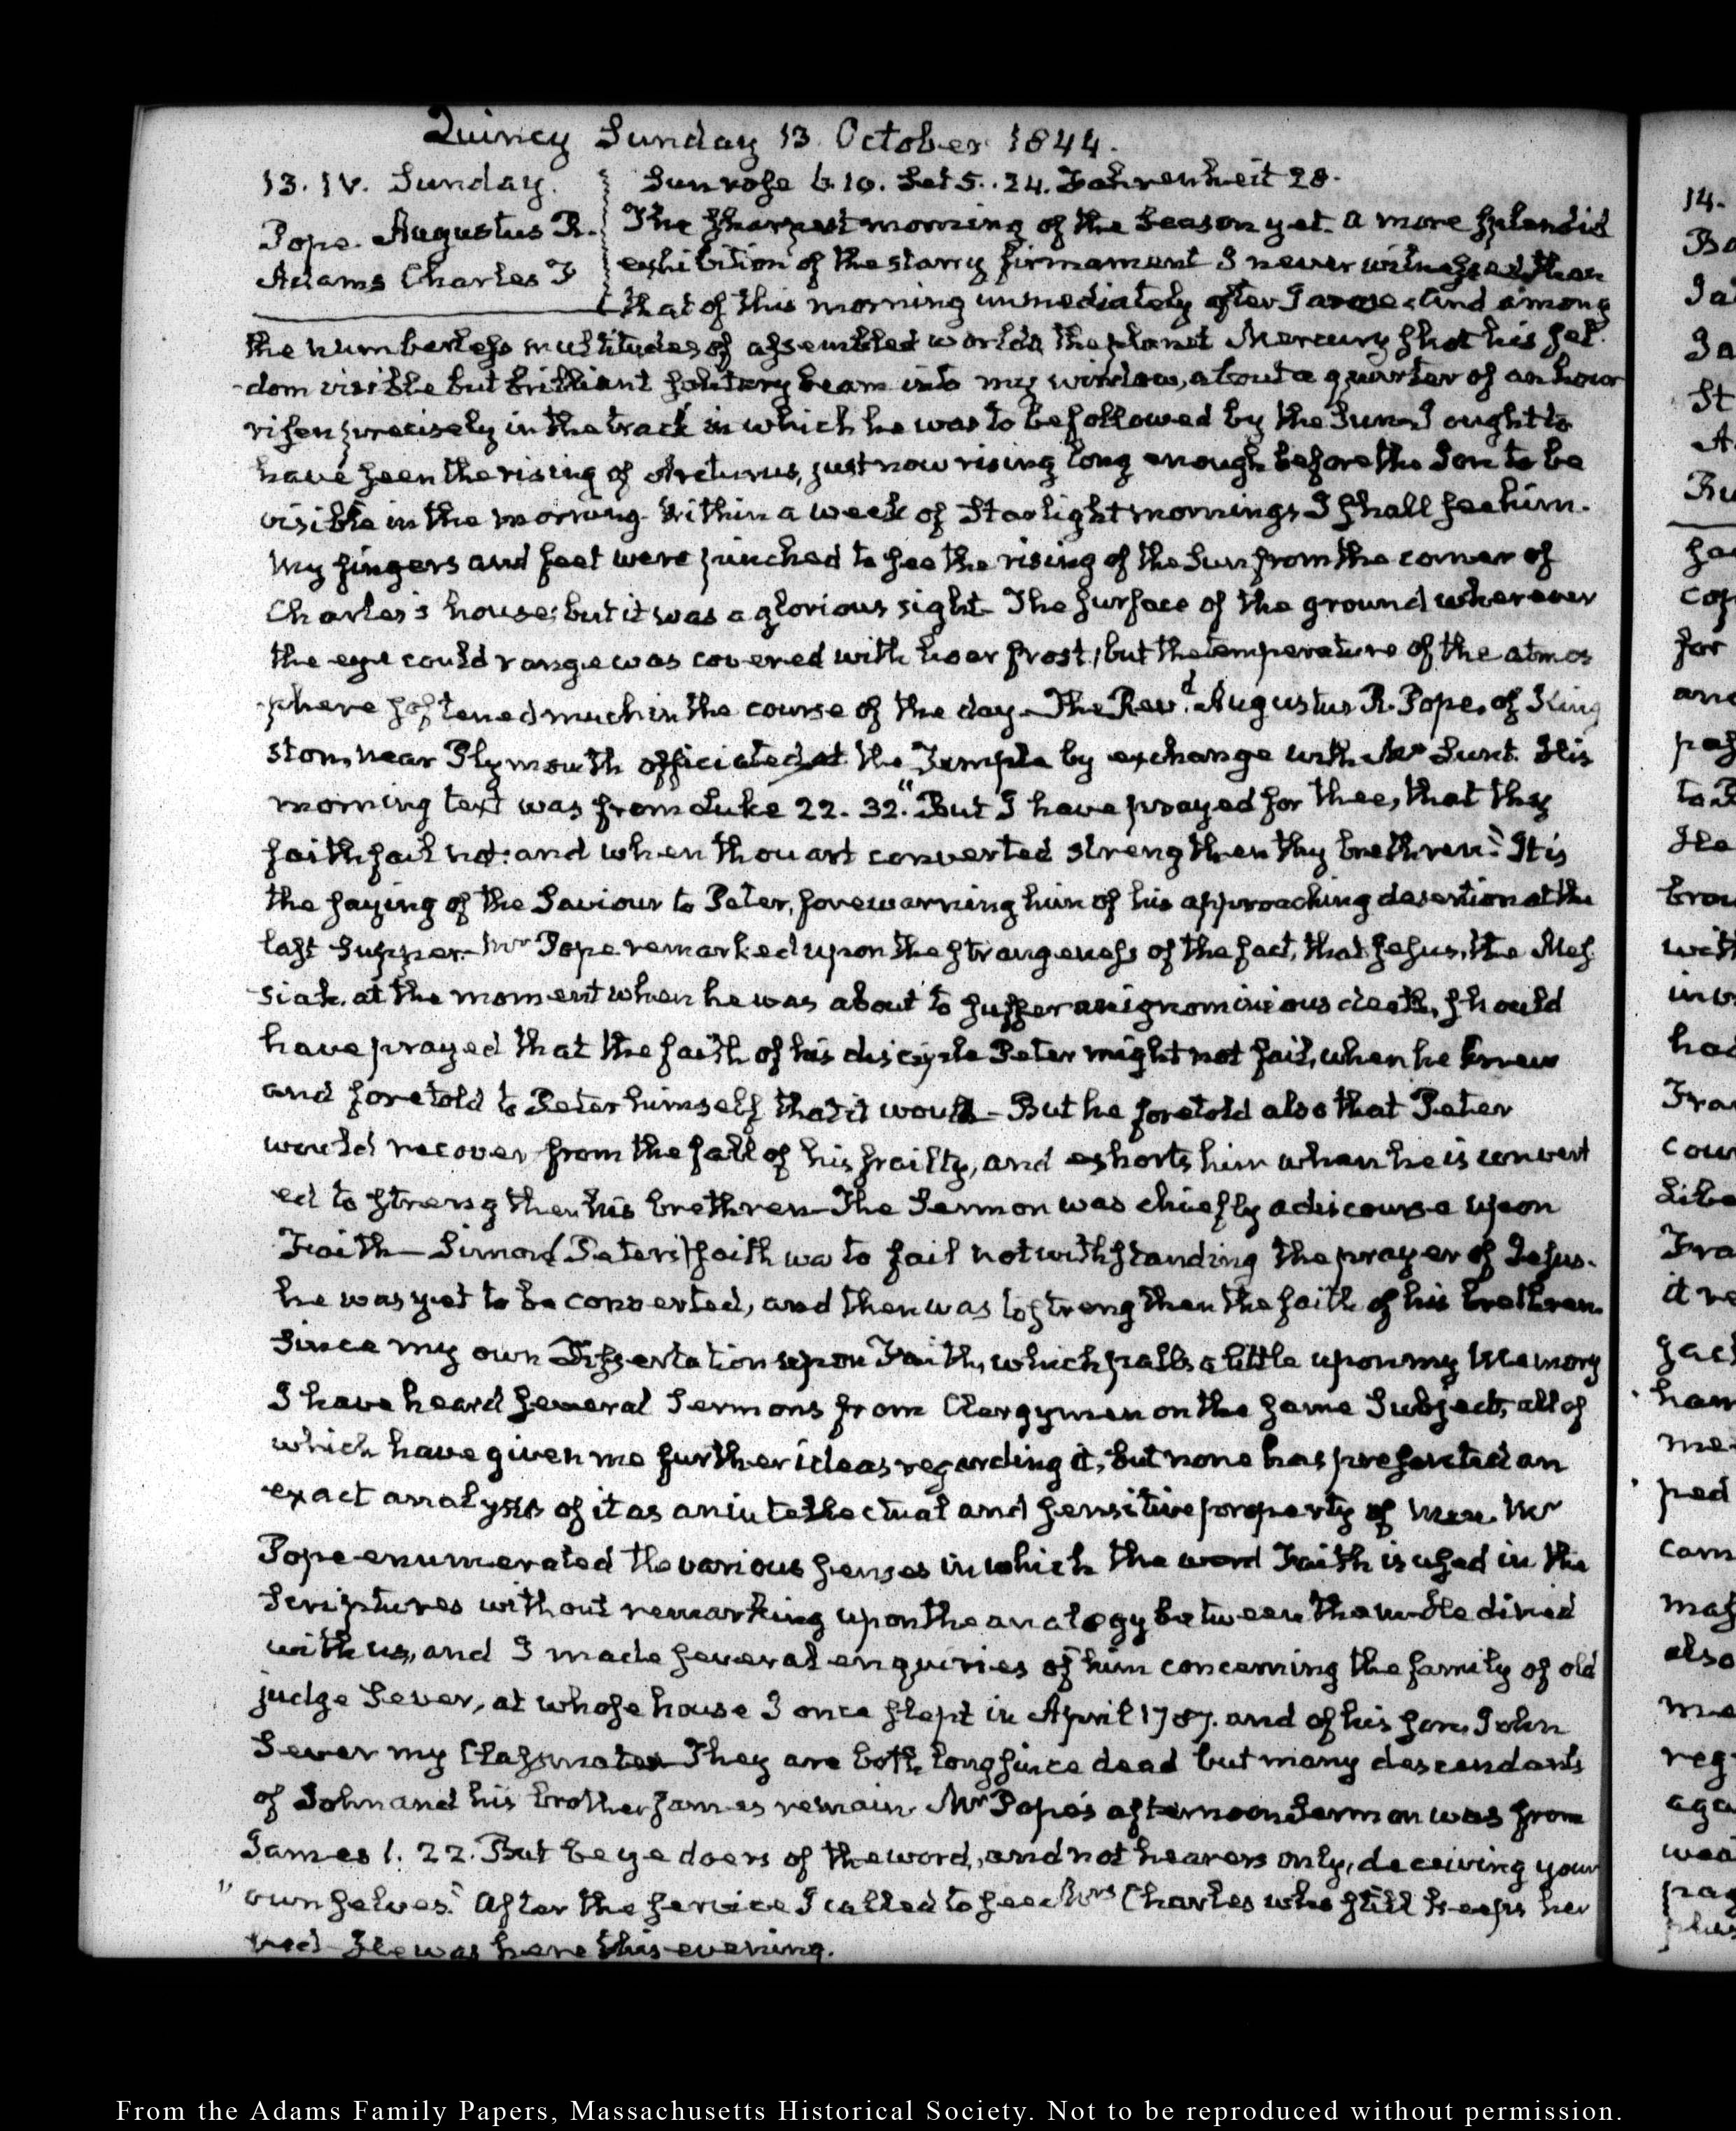 Quincy Sunday 13. October 1844.
13. IV. Sunday.
Pope. Augustus R.
Adams Charles F
Sun rose 6.10. Set 5..24. Fahrenheit 28.
The sharpest morning of the Season yet. a more splendid
exhibition of the starry firmament I never witnessed than
that of this morning immediately after I arose. And among
the numberless multitudes of assembled worlds, the planet Mercury shot his sel-
-dom visible but brilliant solitary beam into my window, about a quarter of an hour
risen precisely in the track in which he was to be followed by the Sun. I ought to
have seen the rising of Arcturus, just now rising long enough before the Son to be
visible in the morning. Within a week of Starlight mornings I shall see him.
My fingers and feet were pinched to see the rising of the Sun from the corner of
Charles's house; but it was a glorious sight. The surface of the ground wherever
the eye could range was covered with hoar frost, but the temperature of the atmos
-phere softened much in the course of the day. The Revd. Augustus R. Pope, of King
ston, near Plymouth officiated at the Temple by exchange with Mr Lunt. His
morning text was from Luke 22. 32. "But I have prayed for thee, that thy
faith fail not: and when thou art converted strengthen thy brethren." It is
the saying of the Saviour to Peter, forewarning him of his approaching desertion at the
last Supper. Mr Pope remarked upon the strangeness of the fact, that Jesus, the Mes-
-siah, at the moment when he was about to suffer an ignominious death, should
have prayed that the faith of his disciple Peter might not fail, when he knew
and foretold to Peter himself that it would— But he foretold also that Peter
would recover from the fall of his frailty, and exhorts him when he is convert
ed to strengthen his brethren—The Sermon was chiefly a discourse upon
Faith— Simon (Peter's) faith wa to fail notwithstanding the prayer of Jesus.
he was yet to be converted, and then was to strengthen the faith of his brethren.
Since my own Dissertation upon Faith, which palls a little upon my Memory
I have heard several Sermons from Clergymen on the same Subject, all of
which have given me further ideas regarding it, but none has presented an
exact analysis of it as an intellectual and sensitive property of Men. Mr
Pope enumerated the various senses in which the word Faith is used in the
Scriptures without remarking upon the analogy between them—He dined
with us, and I made several enquiries of him concerning the family of old
judge Sever, at whose house I once slept in April 1787. and of his son, John
Sever my Classmate. They are both long since dead but many descendants
of John and his brother James remain. Mr Pope's afternoon Sermon was from
James 1. 22. But be ye doers of the word, and not hearers only, deceiving your
" own selves." After the service I called to see Mrs Charles who still keeps her
bed— He was here this evening.
14.
From the Adams Family Papers, Massachusetts Historical Society. Not to be reproduced without permission.